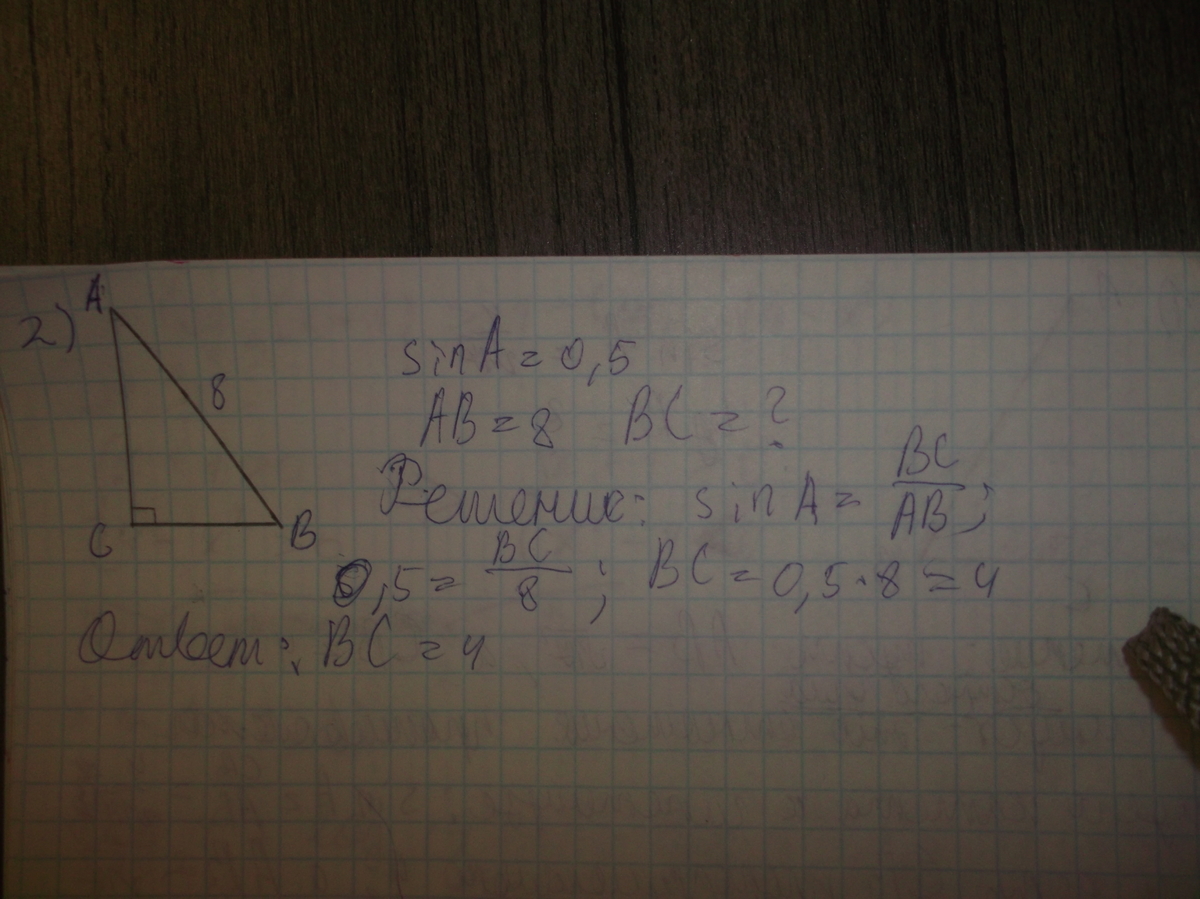 2)
A
8
C
B
sin A = 0,5
AB = 8 BC = ?
Решение: sin A = BC/AB;
0,5 = BC/8; BC = 0,5·8 = 4
Ответ: BC = 4